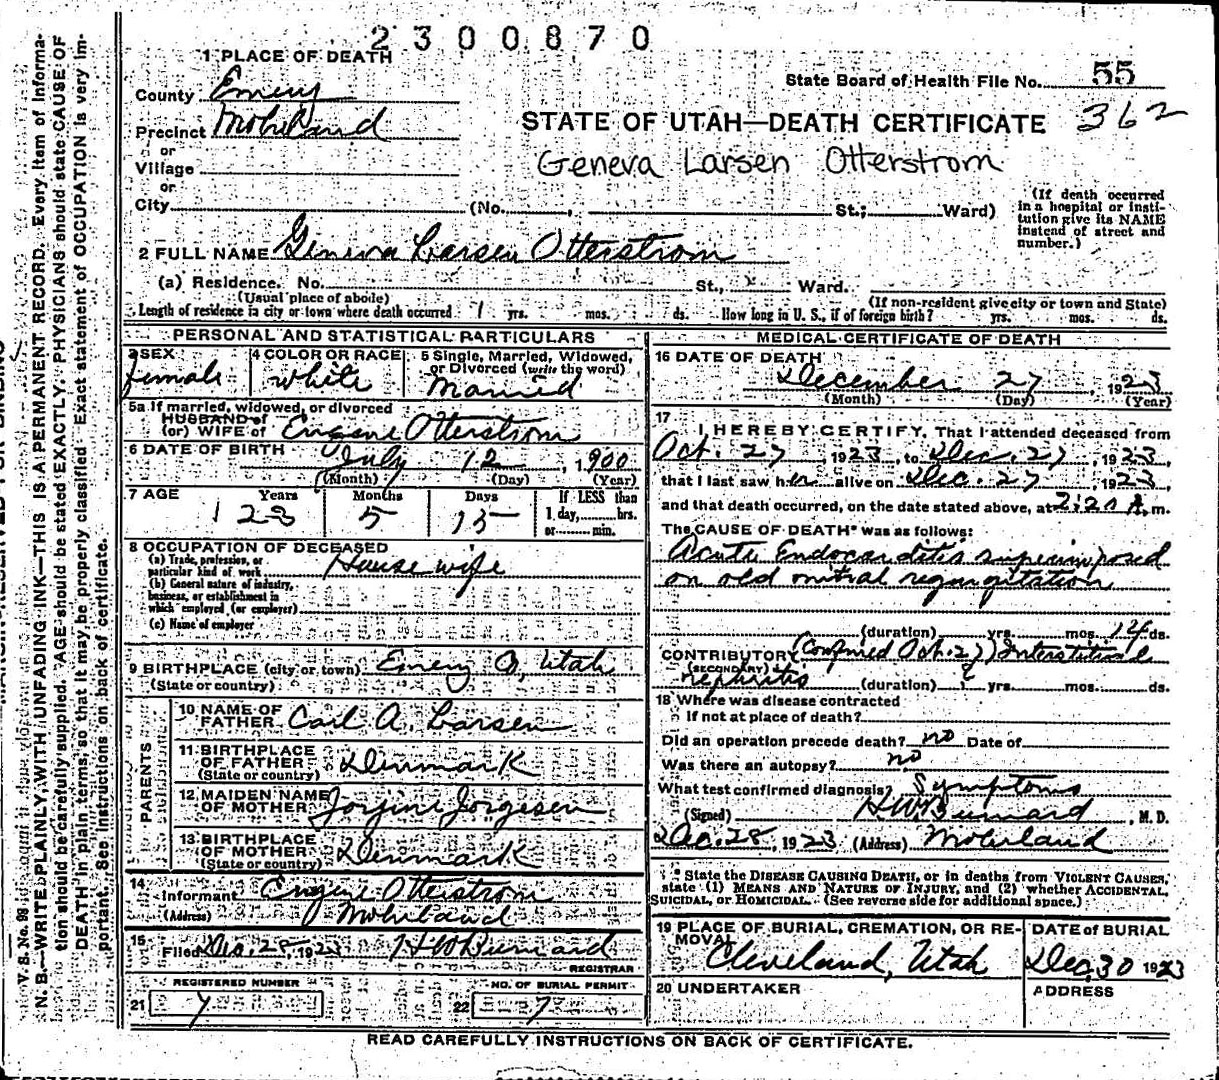 2300870
1 PLACE OF DEATH
State Board of Health File No. 55
County Emery
362
STATE OF UTAH—DEATH CERTIFICATE
Precinct Mohrland
or
Geneva Larsen Otterstrom
Village
or
City (No. , St.; Ward)
(If death occurred
in a hospital or insti-
tution give its NAME
instead of street and
number.)
2 FULL NAME Geneva Larsen Otterstrom
(a) Residence. No. St., Ward.
(Usual place of abode)
(If non-resident give city or town and State)
Length of residence in city or town where death occurred 1 yrs. mos. ds. How long in U. S., if of foreign birth? yrs. mos. ds.
PERSONAL AND STATISTICAL PARTICULARS
3 SEX
female
4 COLOR OR RACE
white
5 Single, Married, Widowed,
or Divorced (write the word)
Married
5a If married, widowed, or divorced
HUSBAND of
(or) WIFE of Eugene Otterstrom
6 DATE OF BIRTH July 12, 1900
(Month) (Day) (Year)
7 AGE Years Months Days
If LESS than
1 day, hrs.
or min.
23 5 15
8 OCCUPATION OF DECEASED
(a) Trade, profession, or
particular kind of work House wife
(b) General nature of industry,
business, or establishment in
which employed (or employer)
(c) Name of employer
9 BIRTHPLACE (city or town) Emery Utah
(State or country)
PARENTS
10 NAME OF
FATHER Carl A. Larsen
11 BIRTHPLACE
OF FATHER Denmark
(State or country)
12 MAIDEN NAME
OF MOTHER Jorgine Jorgesen
13 BIRTHPLACE
OF MOTHER Denmark
(State or country)
14
Informant Eugene Otterstrom
(Address) Mohrland
15
Filed Dec. 28, 1923 H W
REGISTRAR
REGISTERED NUMBER
21
NO. OF BURIAL PERMIT
22 7
MEDICAL CERTIFICATE OF DEATH
16 DATE OF DEATH
December 27 1923
(Month) (Day) (Year)
17
I HEREBY CERTIFY, That I attended deceased from
Oct. 27, 1923, to Dec. 27, 1923,
that I last saw her alive on Dec. 27, 1923,
and that death occurred, on the date stated above, at 2:20 A. m.
The CAUSE OF DEATH* was as follows:
Acute Endocarditis superimposed
on old mitral regurgitation
(duration) yrs. mos. 14 ds.
CONTRIBUTORY (Confined Oct. 27) Interstitial
(SECONDARY)
nephritis (duration) yrs. mos. ds.
18 Where was disease contracted
If not at place of death?
Did an operation precede death? no Date of
Was there an autopsy? no
What test confirmed diagnosis? Symptoms
(Signed) H W , M. D.
Dec. 28, 1923 (Address) Mohrland
* State the DISEASE CAUSING DEATH, or in deaths from VIOLENT CAUSES,
state (1) MEANS AND NATURE OF INJURY, and (2) whether ACCIDENTAL,
SUICIDAL, or HOMICIDAL. (See reverse side for additional space.)
19 PLACE OF BURIAL, CREMATION, OR RE-
MOVAL
Cleveland, Utah
DATE of BURIAL
Dec. 30 1923
20 UNDERTAKER
ADDRESS
READ CAREFULLY INSTRUCTIONS ON BACK OF CERTIFICATE.
N. B.—WRITE PLAINLY, WITH UNFADING INK—THIS IS A PERMANENT RECORD. Every item of informa-
tion should be carefully supplied. AGE should be stated EXACTLY. PHYSICIANS should state CAUSE OF
DEATH in plain terms, so that it may be properly classified. Exact statement of OCCUPATION is very im-
portant. See instructions on back of certificate.